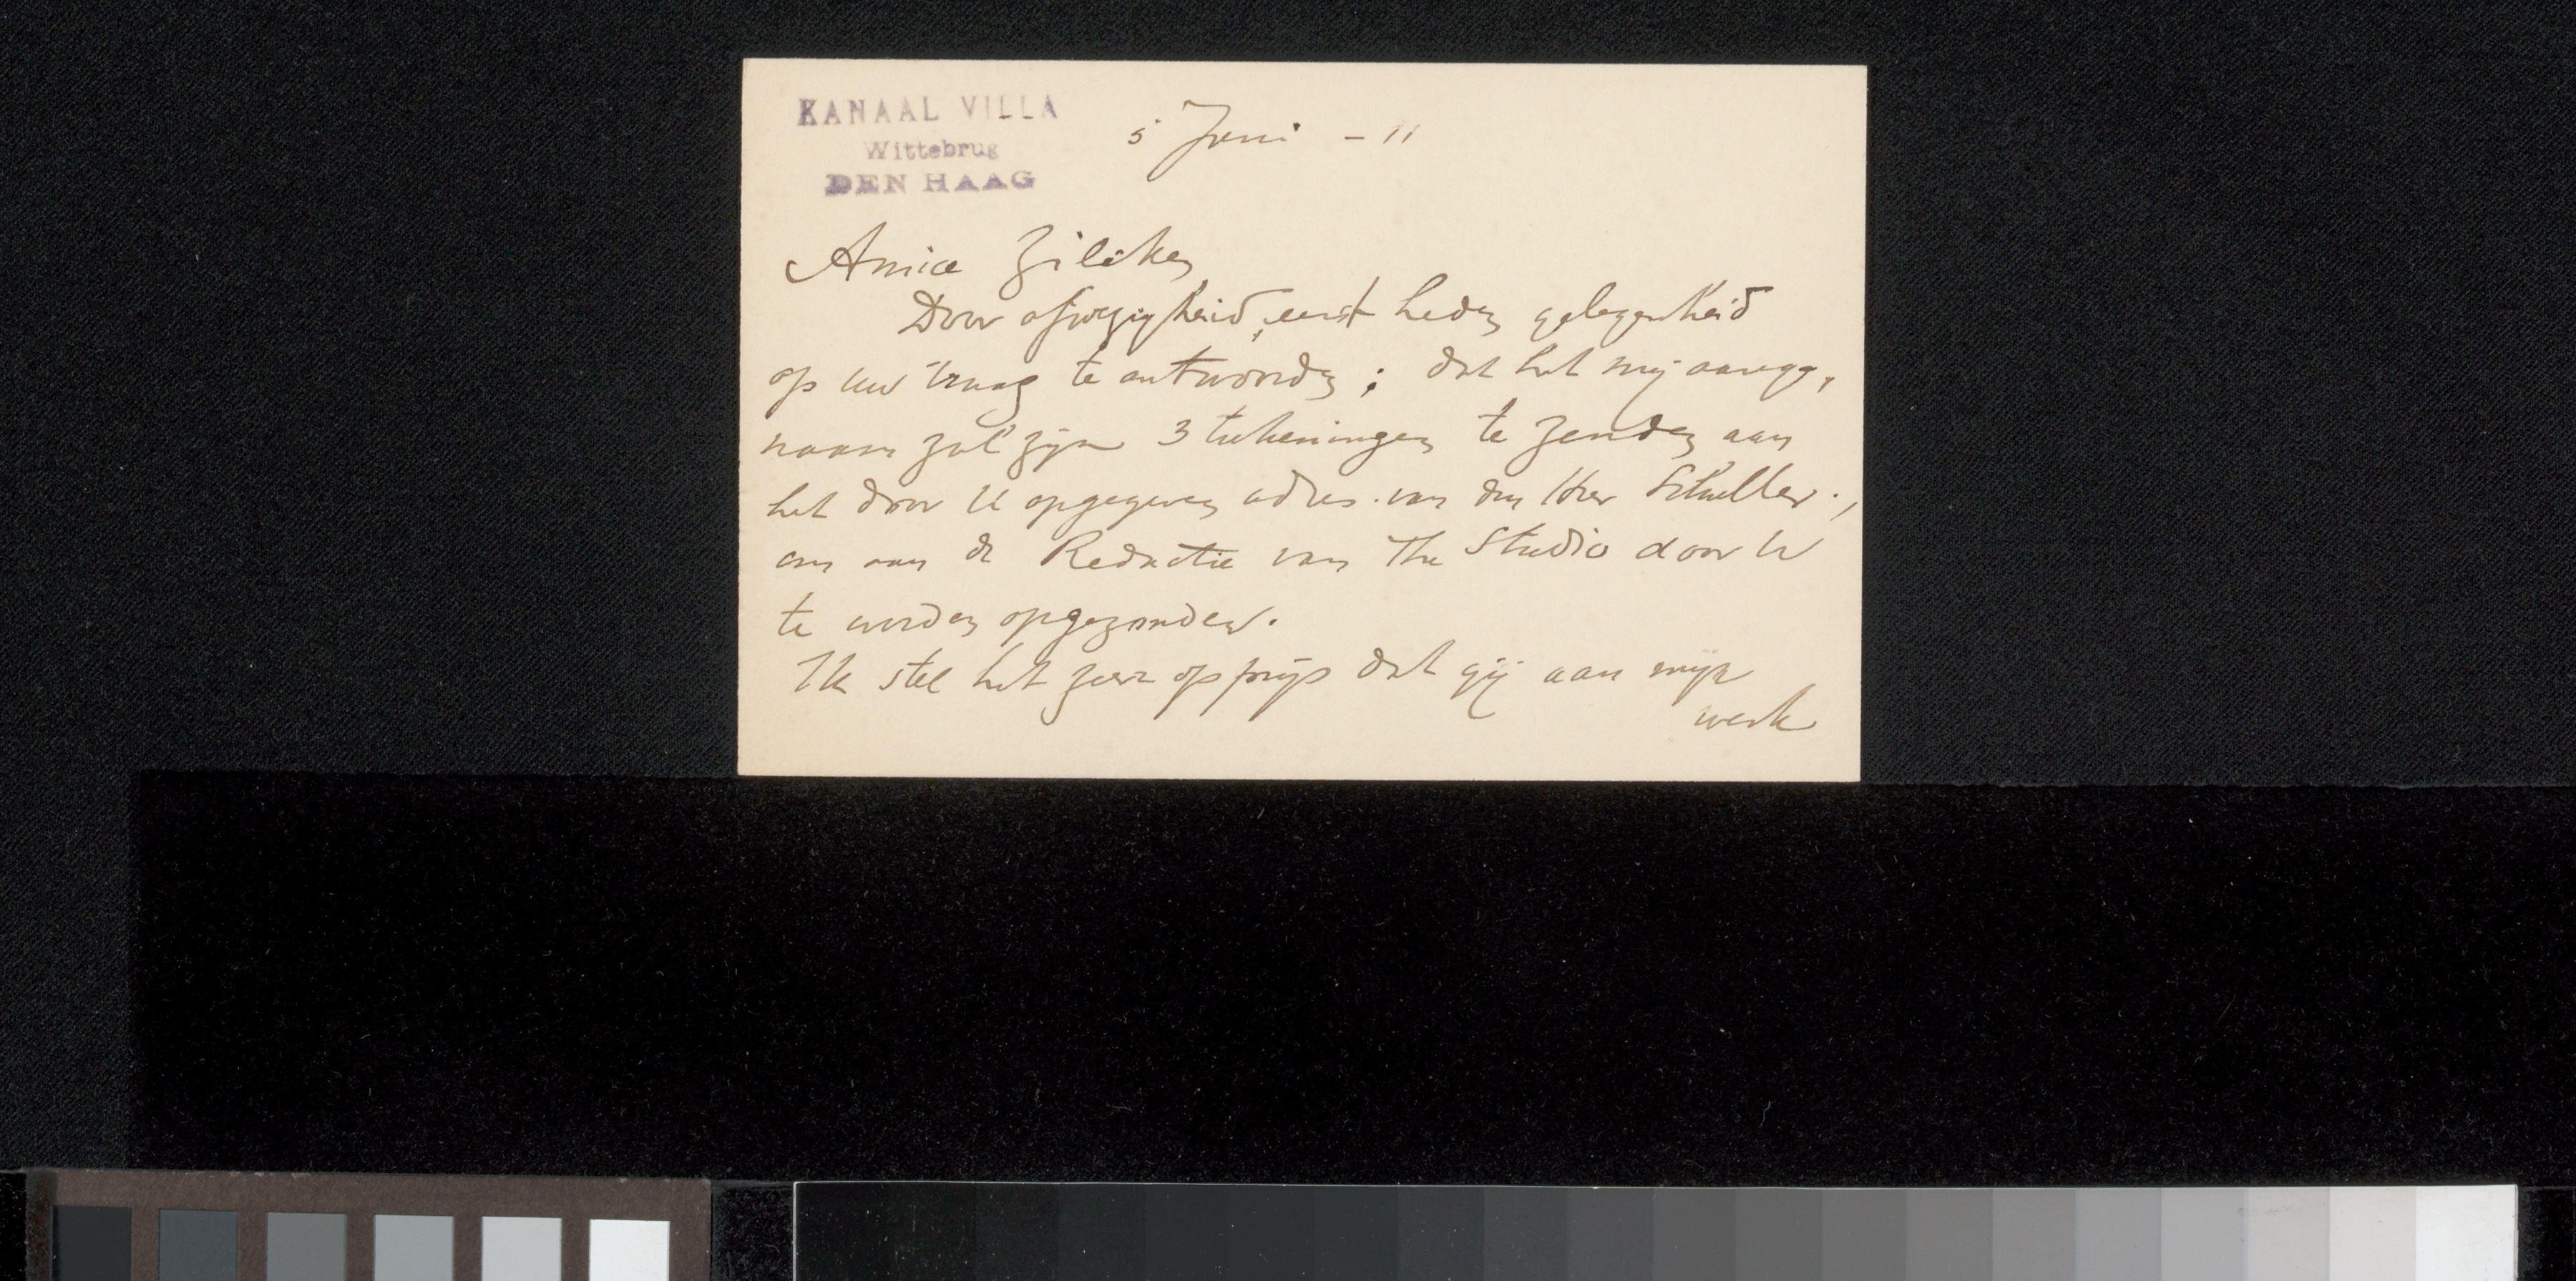 KANAAL VILLA
Wittebrug
DEN HAAG
5 Juni - 11
Amice Zilcken
Door afwezigheid, eerst heden gelegenheid
op uw vraag te antwoorden; dat het mij aange,
naam zal zijn 3 tekeningen te zenden aan
het door U opgegeven adres van den Heer Schuller.,
om aan de Redactie van The Studio door U
te worden opgezonden.
Ik stel het zeer op prijs dat gij aan mijn
werk